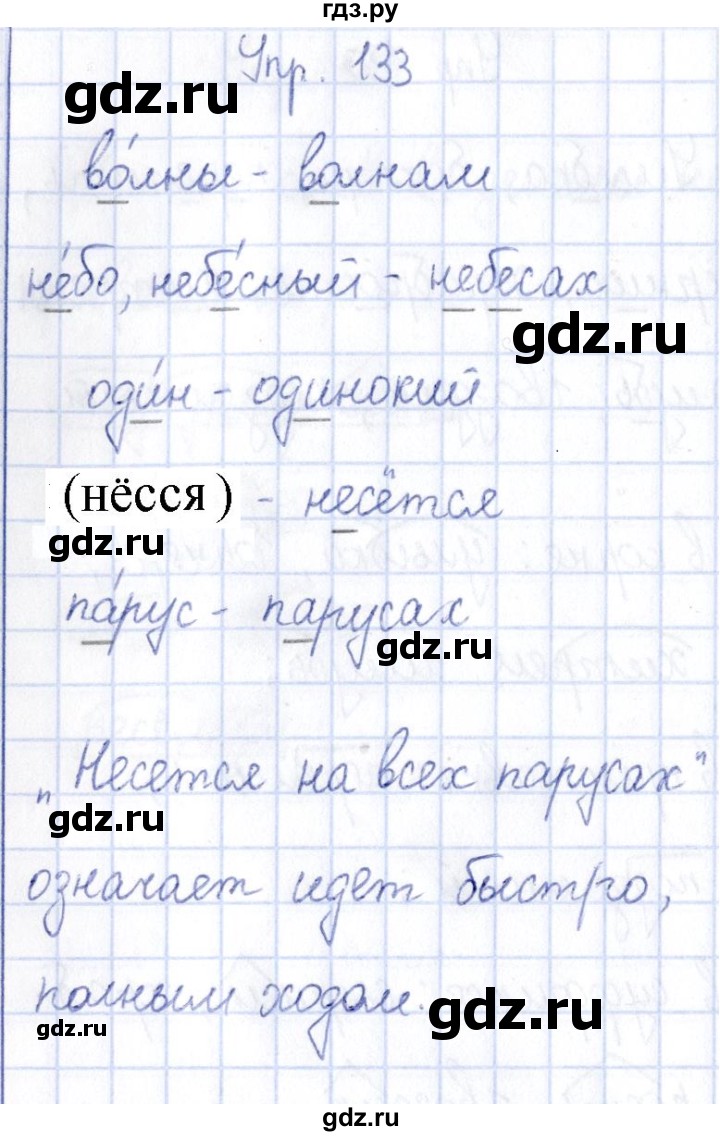 гдз.ру
Упр. 133
gdz.ru
во́лны - волнам
не́бо, небе́сный - небесах
gdz.ru
оди́н - одинокий
(нёсся) - несётся
gdz.ru
па́рус - парусах
gdz.ru
„Несется на всех парусах"
gdz.ru
означает идет быстро,
gdz.ru
полным ходом.
gdz.ru
gdz.ru
gdz.ru